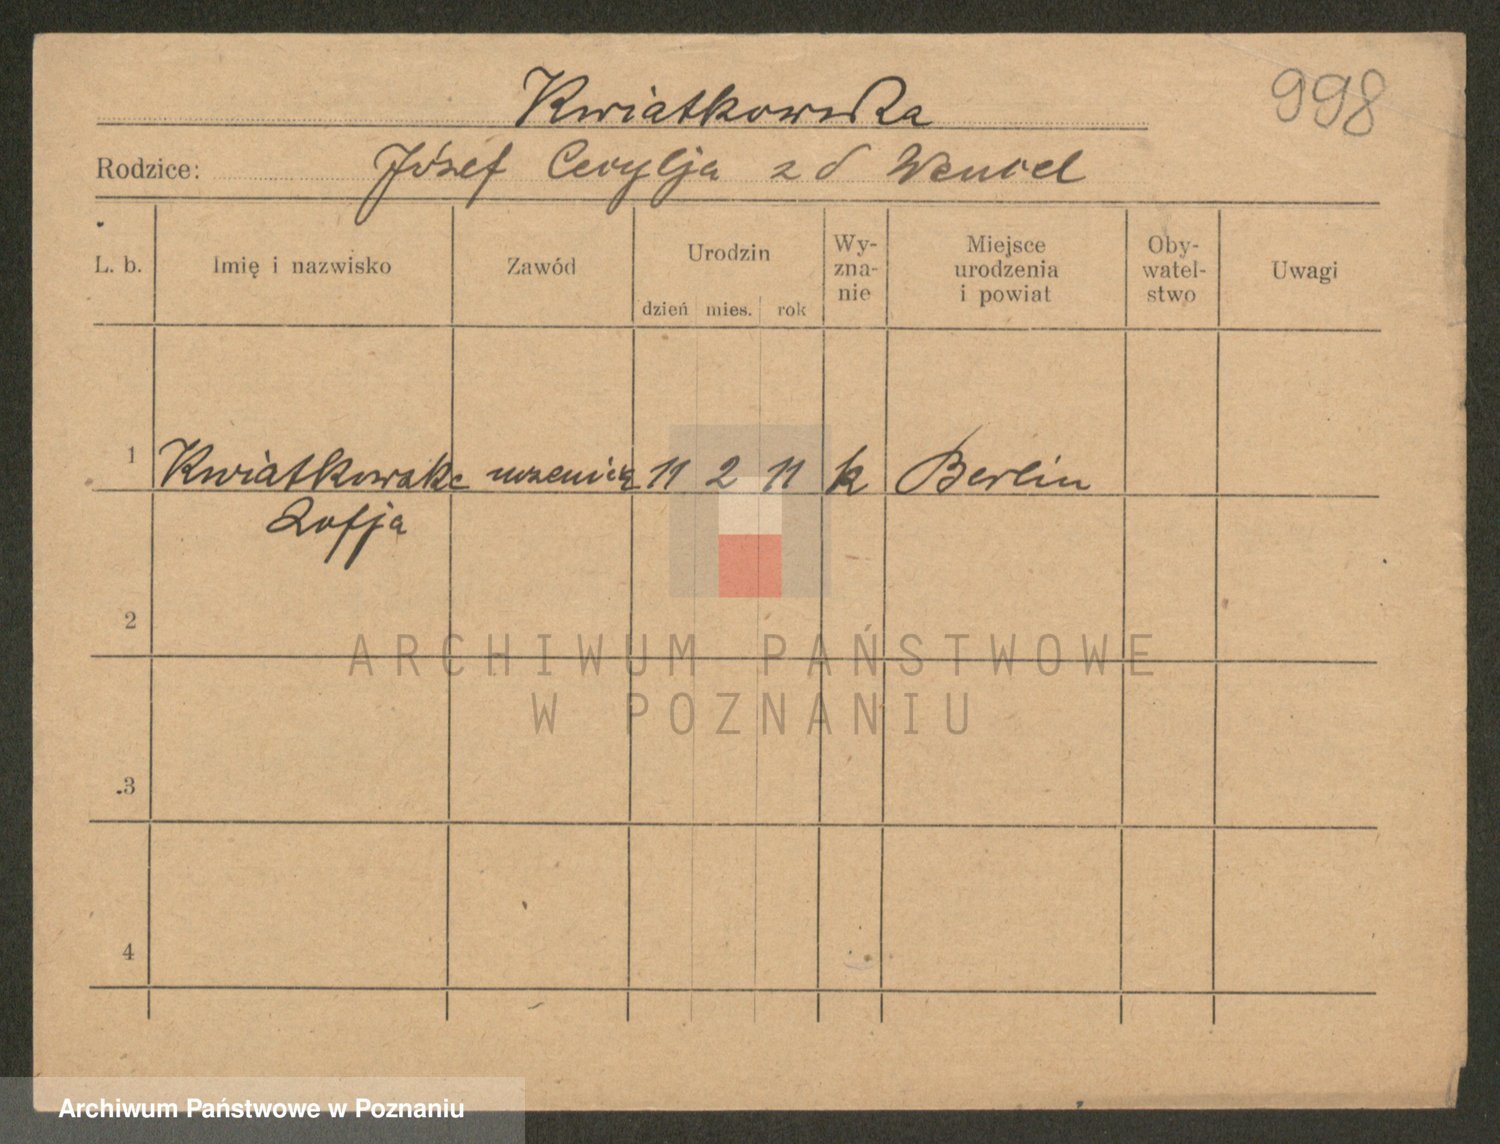 998
Kwiatkowska
Rodzice: Józef Cecylja z d Wencel
L. b.
Imię i nazwisko
Zawód
Urodzin
dzień mies. rok
Wy-
zna-
nie
Miejsce
urodzenia
i powiat
Oby-
watel-
stwo
Uwagi
1 Kwiatkowska uczenica 11 2 11 k Berlin
Zofja
2
3
4
ARCHIWUM PAŃSTWOWE
W POZNANIU
Archiwum Państwowe w Poznaniu